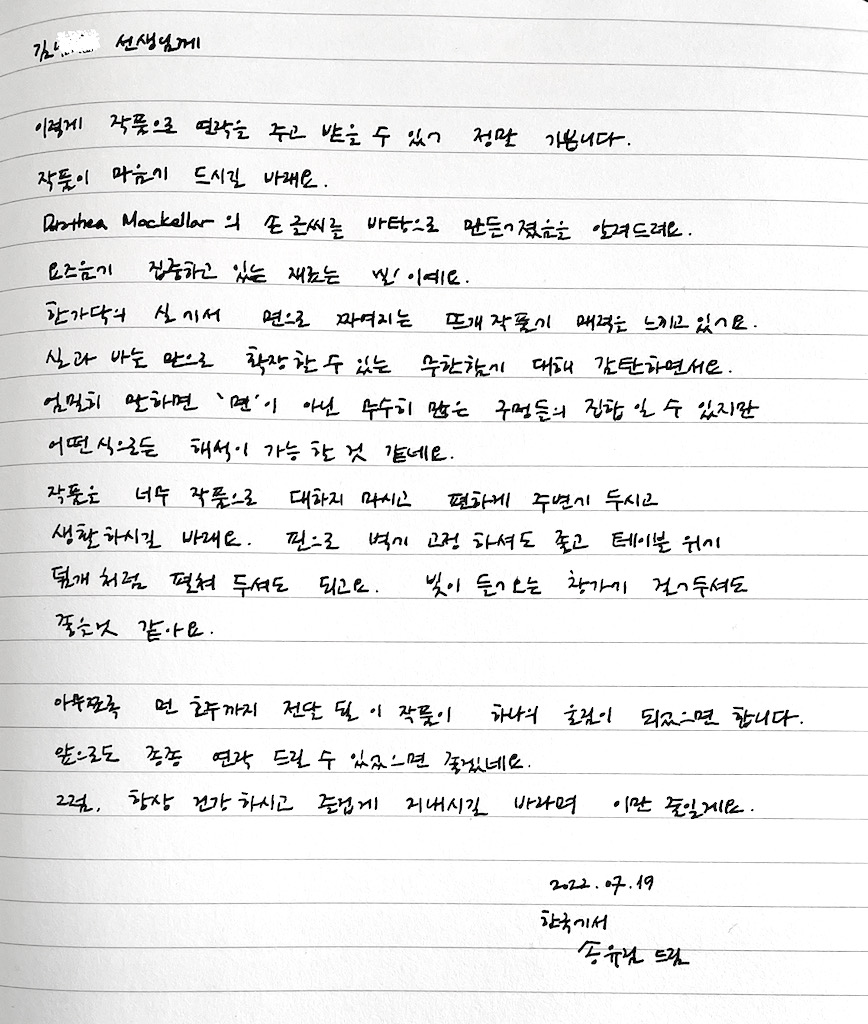 김 선생님께
이렇게 작품으로 연락을 주고 받을 수 있어 정말 기쁩니다.
작품이 마음에 드시길 바래요.
Dorothea Mackellar의 손글씨를 바탕으로 만들어졌음을 알려드려요.
요즈음에 집중하고 있는 재료는 '실'이예요.
한가닥의 실에서 면으로 짜여지는 뜨개 작품에 매력을 느끼고 있어요.
실과 바늘 만으로 확장 할 수 있는 무한함에 대해 감탄하면서요.
엄밀히 말하면 '면'이 아닌 무수히 많은 구멍들의 집합 일 수 있지만
어떤식으로든 해석이 가능 할 것 같네요.
작품은 너무 작품으로 대하지 마시고 편하게 주변에 두시고
생활하시길 바래요. 핀으로 벽에 고정 하셔도 좋고 테이블 위에
덮개처럼 펼쳐 두셔도 되고요. 빛이 들어오는 창가에 걸어두셔도
좋을것 같아요.
아무쪼록 먼 호주까지 전달 될 이 작품이 하나의 울림이 되었으면 합니다.
앞으로도 종종 연락 드릴 수 있었으면 좋겠네요.
그럼, 항상 건강하시고 즐겁게 지내시길 바라며 이만 줄일게요.
2022.07.19
한국에서
송유림 드림